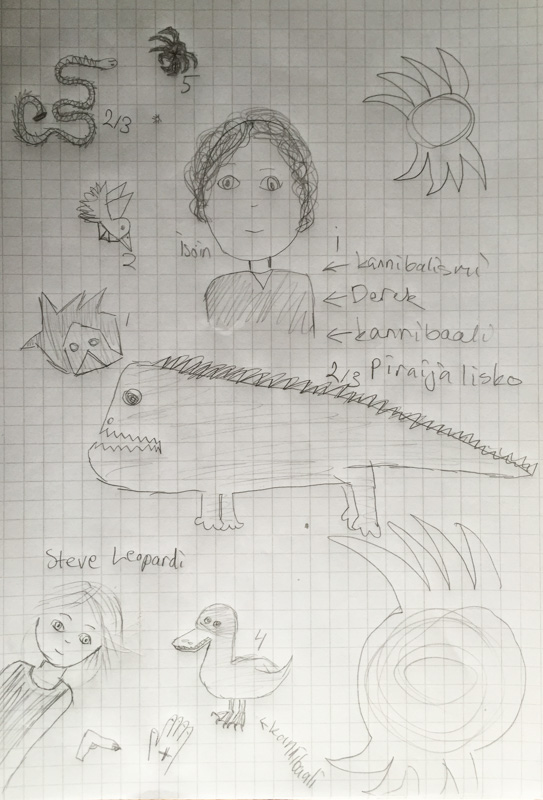 5
2/3
2
isoin
i
← kannibalismi
← Derek
← kannibaali
1
2/3 Piraijalisko
Steve Leopardi
4
+
← kannibaali